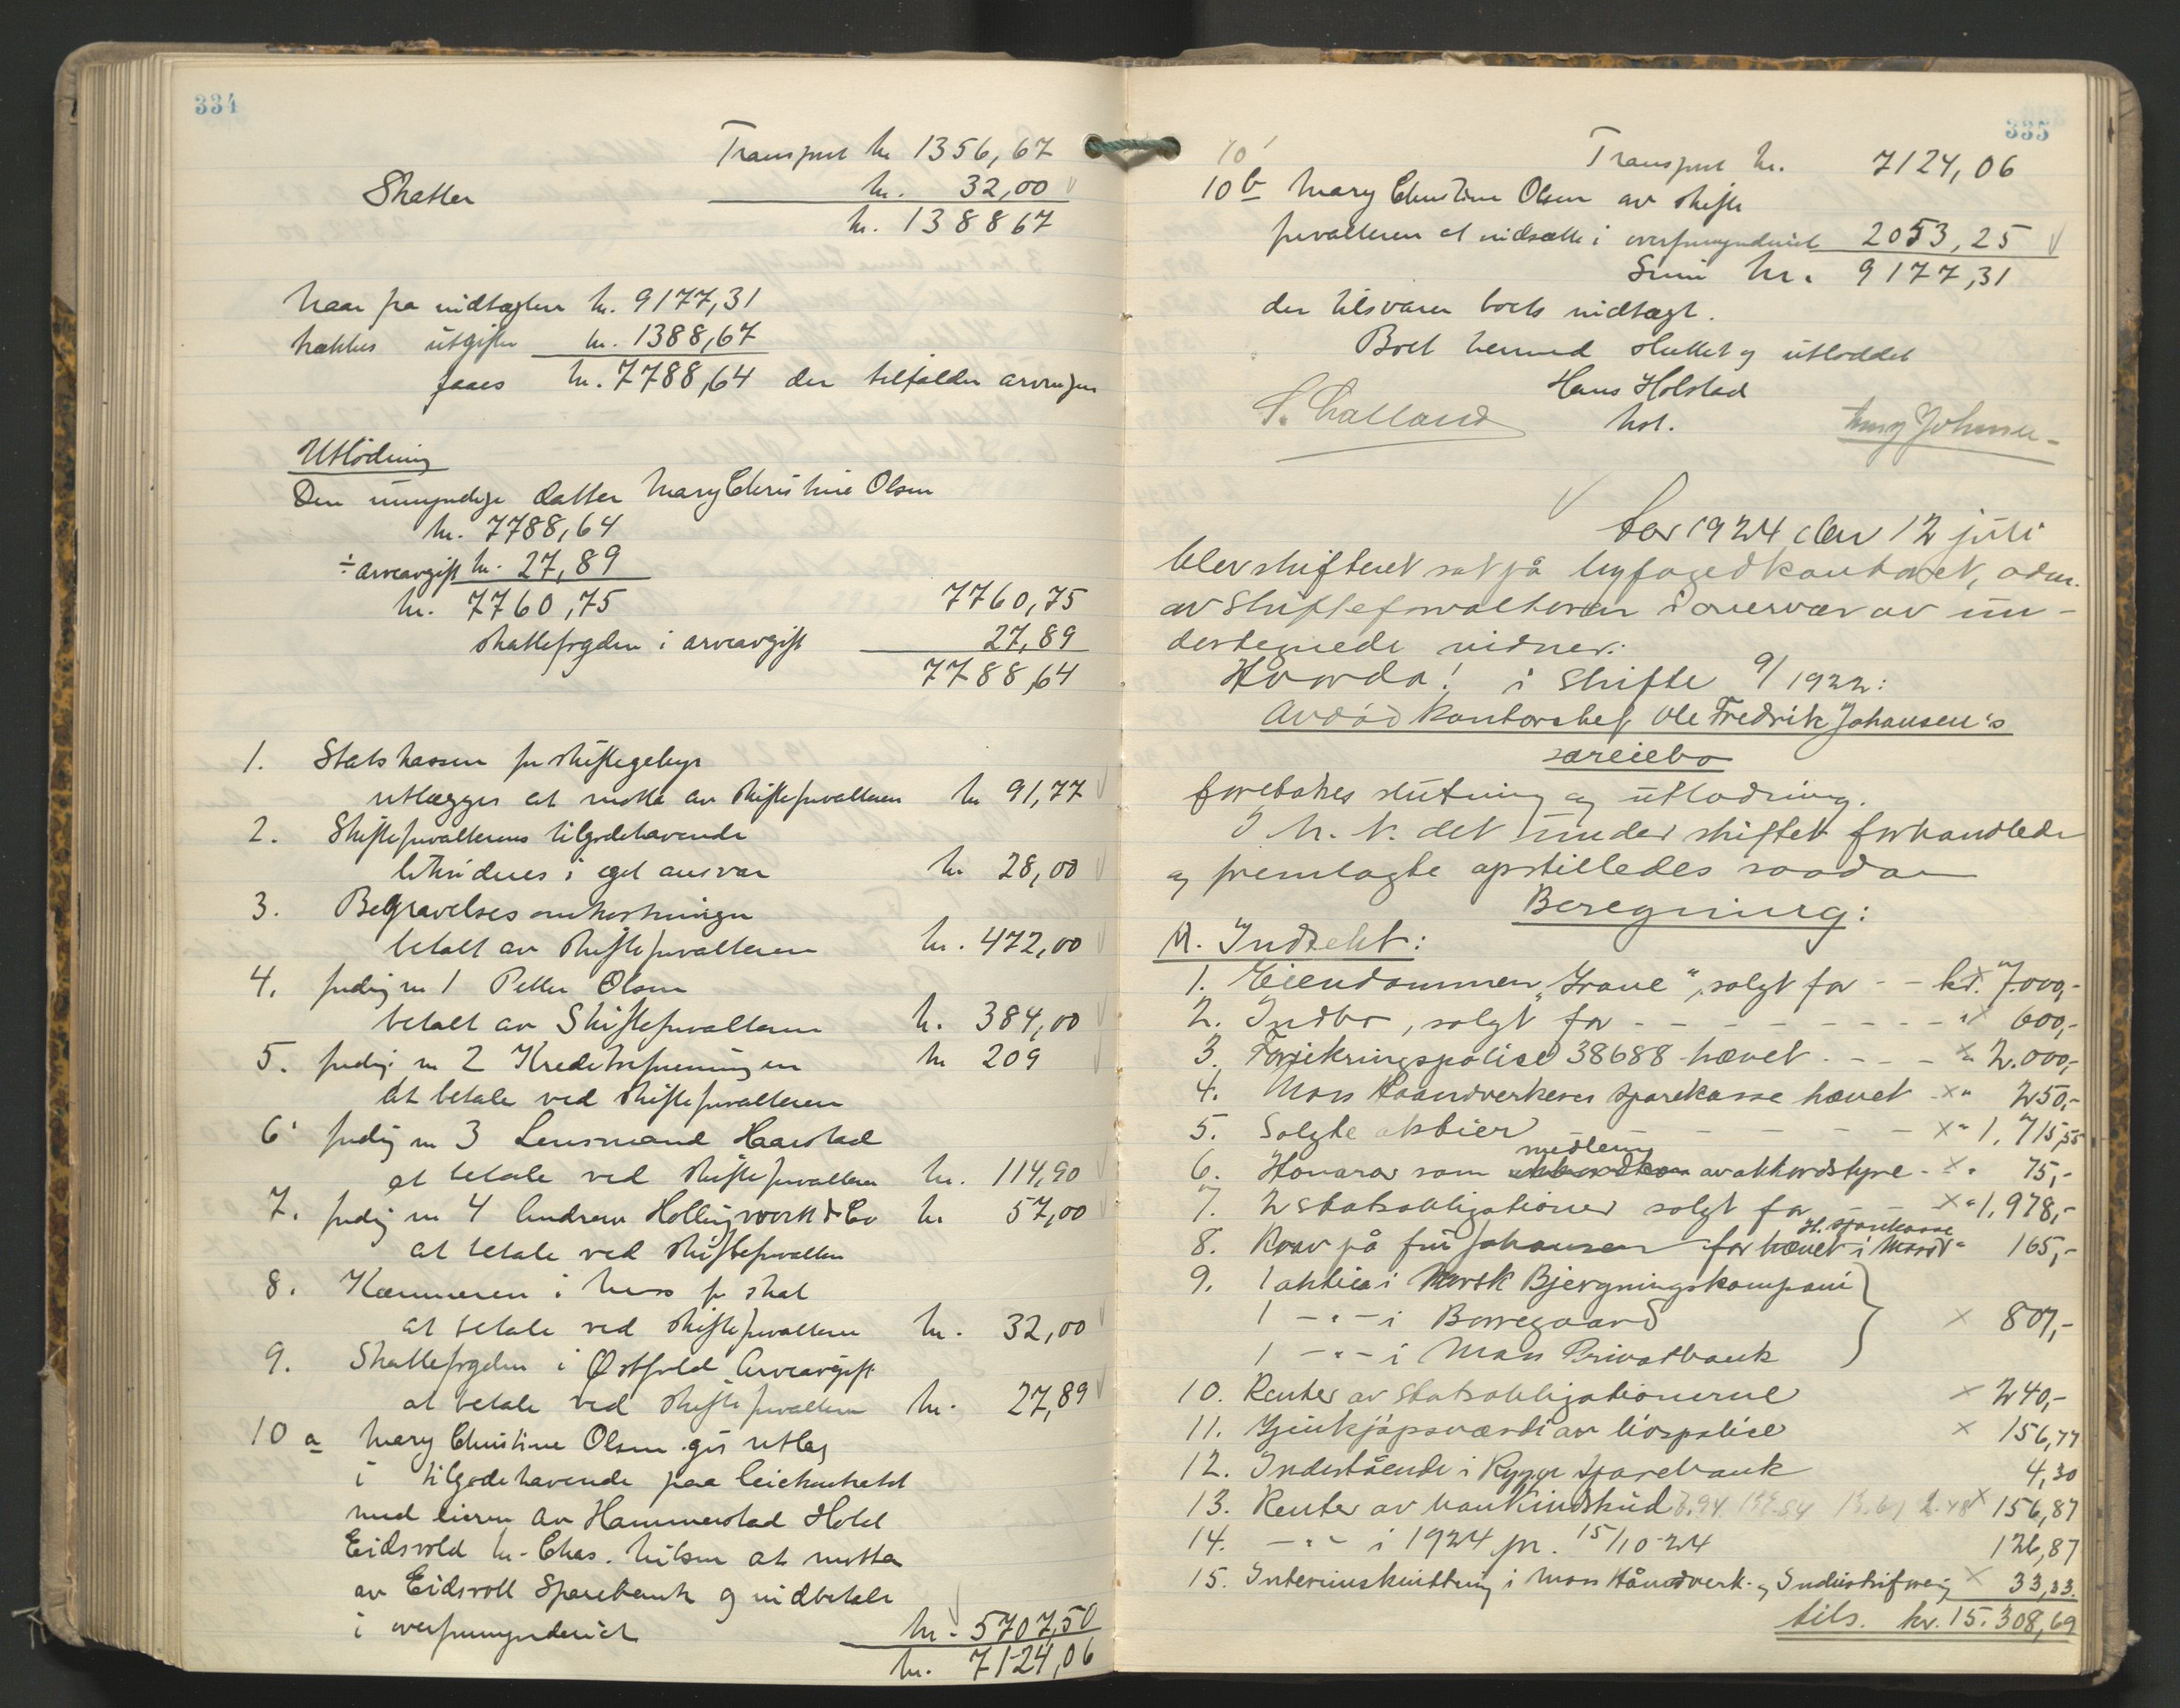 334
Transport kr 1356,67
Skatter kr. 32,00
kr. 1388 67
Naar fra indtægten kr. 9177,31
trækkes utgifter kr. 1388,67
faaes kr. 7788,64 der tilfalder arvingen
Utlodning
Den umyndige datter Mary Christine Olsen
kr. 7788,64
÷ arveavgift kr. 27,89
kr. 7760,75 7760,75
skattefogden i arveavgift 27,89
7788,64
1. Statskassen for skiftegebyr
utlægges at motta av skifteforvalteren kr 91,77
2. Skifteforvalterens tilgodehavende
i eget ansvar kr 28,00
3. Begravelsesomkostninger
betalt av skifteforvalteren kr. 472,00
4. fordring nr 1 Petter Olsen
betalt av Skifteforvalteren kr. 384,00
5. fordring nr 2 Kreditforeningen kr 209
at betale ved skifteforvalteren
6 fordring nr 3 Lensmand Haarstad
at betale ved skifteforvalteren kr. 114,90
7. fordring nr 4 Andrew Hollingworth & Co kr 57,00
at betale ved skifteforvalteren
8. Kæmneren i Moss for skat
at betale ved skifteforvalteren kr. 32,00
9. Skattefogden i Østfold Arveavgift
at betale ved skifteforvalteren kr. 27,89
10 a Mary Christine Olsen gis utlæg
i tilgodehavende paa
med eieren av Hammerstad Hotel
Eidsvold hr. Chas. Nilsen at motta
av Eidsvoll Sparebank og indbetale
i overformynderiet kr. 5707,50
kr. 7124,06
335
Transport kr. 7124,06
10 b Mary Christine Olsen av skifte
forvalteren at indsætte i overformynderiet 2053,25
Sum kr. 9177,31
der tilsvarer boets indtægt.
Boet hermed sluttet og utloddet
Hans Holstad
kst.
Aar 1924 den 12 juli
blev skifteret sat på byfogedkontoret, adm.
av skifteforvalteren i overvær av un-
dertegnede vidner.
Hvorda! i Skifte 9/1922:
Avdød kontorchef Ole Fredrik Johansen's
særeiebo
foretokes slutning og utlodning.
I h. t. det under skiftet forhandlede
og fremlagte opstilledes saadan
Beregning:
A. Indtekt:
1. Eiendommen "Grane", solgt for - - kr. 7.000,-
2. Indbo, solgt for - - - " 600,-
3. Forsikringspolice 38688 hævet - - - " 2.000,-
4. Moss Haandverkeres sparekasse hævet - " 250,-
5. Solgte aktier - - - " 1.715,55
6. Honorar som medlem av akkordstyre - " 75,-
7. 2 statsobligationer solgt for - - " 1.978,-
8. Krav på fru Johansen for hævet i Moss H. sparekasse " 165,-
9. 1 aktie i Norsk Bjergningskompani
1 -"- i Borregaard 807,-
1 -"- i Moss Privatbank
10. Renter av statsobligationerne 240,-
11. Gjenkjøpsværdi av livspolice 156,77
12. Indestående i Rygge Sparebank 4,30
13. Renter av bankindskud 156,87
14. -"- i 1924 pr. 15/10-24 126,87
15. Interimskvittering i Moss Håndverk- og Industriforening 33,33
tils. kr. 15.308,69